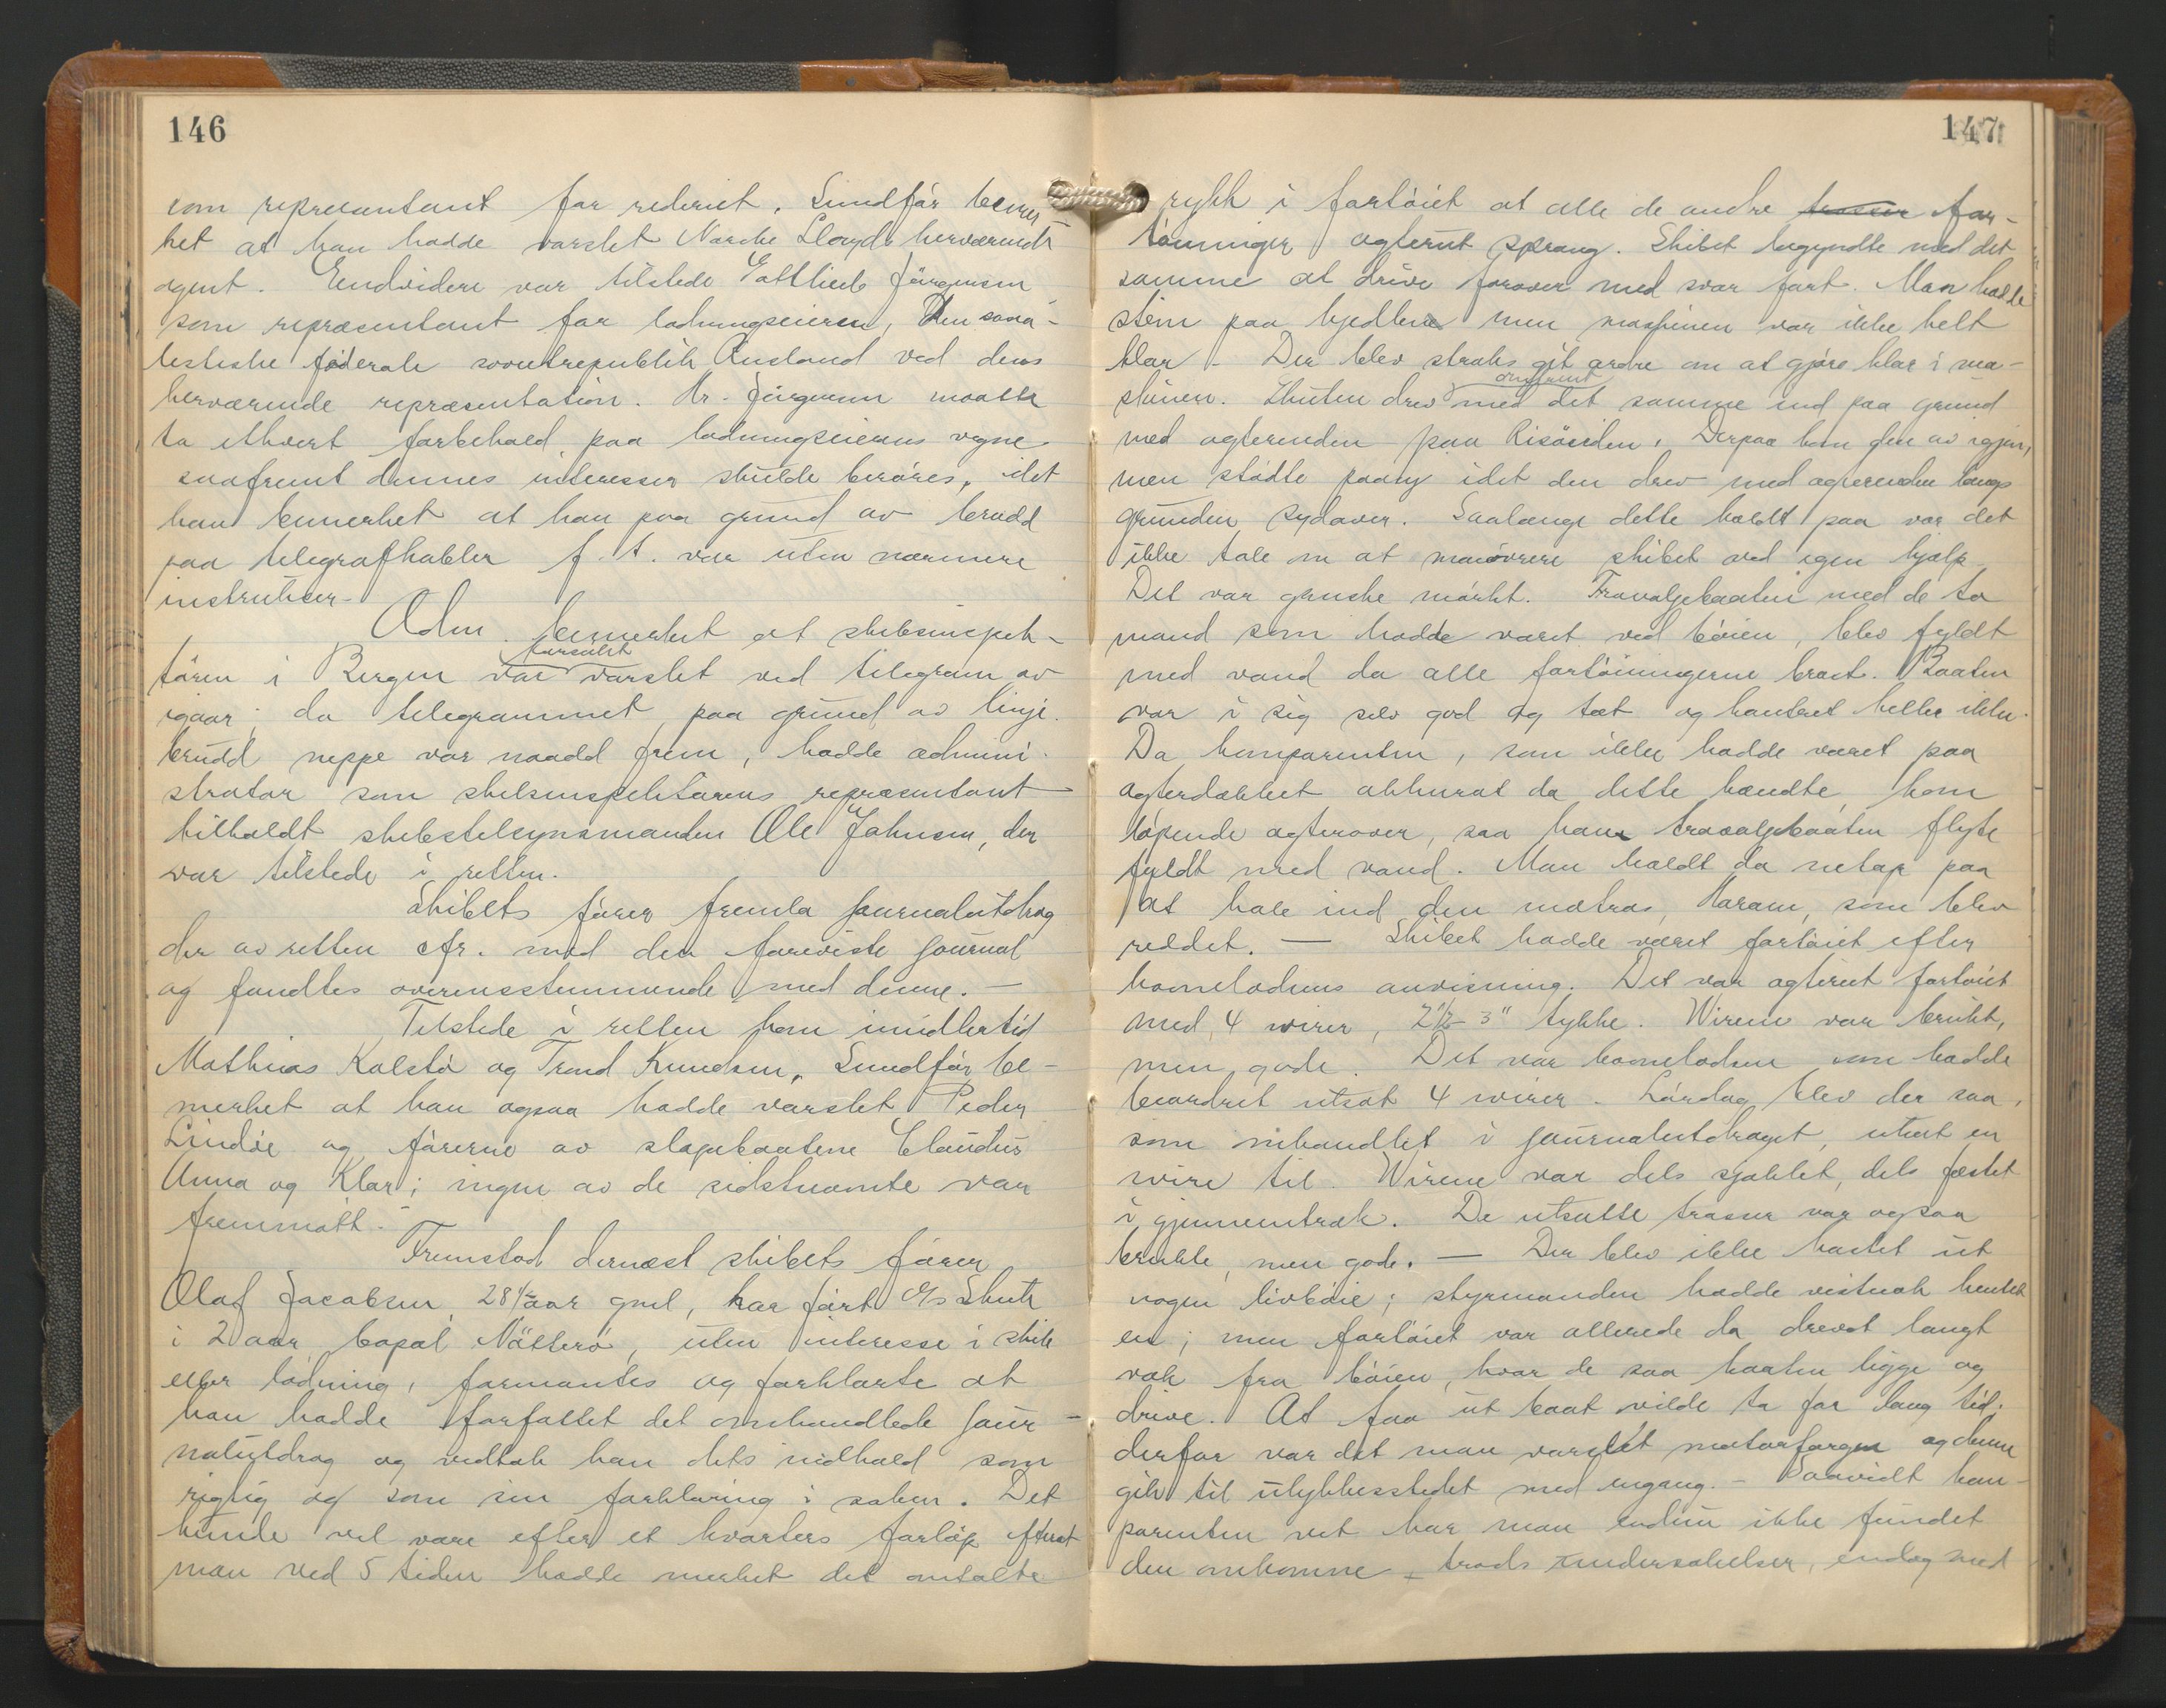 146
som repræsentant for rederiet. Sundför bemer-
ket at han hadde varslet Norske Lloyds herværende
agent. Endvidere var tilstede Gottlieb Jürgensen
som repræsentant for ladningseieren, Den sosia-
listiske föderale sovietrepublik Rusland ved dens
herværende repræsentation. Hr. Jürgensen maatte
ta ethvert forbehold paa ladningseierens vegne
saafremt dennes interesser skulde beröres, idet
han bemerket at han paa grund av brudd
paa telegrafkabler f. t. var uten nærmere
instrukser.
Adm. bemerket at skibsinspek-
tören i Bergen var forsökt varslet ved telegram av
igaar; da telegrammet paa grund av linje-
brudd neppe var naadd frem, hadde admini-
strator som skibsinspektörens repræsentant
tilholdt skibstilsynsmanden Ole Johnsen, der
var tilstede i retten.
Skibets förer fremla journalutdrag
der av retten cfr. med den foreviste journal
og fandtes overensstemmende med denne. —
Tilstede i retten kom imidlertid
Mathias Kalstö og Trond Knudsen. Sundför be-
merket at han ogsaa hadde varslet Peder
Lindöe og förerne av slæpebaatene Claudus
Anna og Klar; ingen av de sidstnævnte var
fremmött. —
Fremstod dernæst skibets förer
Olaf Jacobsen, 28½ aar gml, har fört D/s Skute
i 2 aar, bopæl Nötterö, uten interesse i skib
eller ladning, formantes og forklarte at
han hadde forfattet det omhandlede jour-
nalutdrag og vedtok han dets indhold som
rigtig og som sin forklaring i saken. Det
kunde vel være efter et kvarters forlöp efterat
man ved 5 tiden hadde merket det omtalte
147
rykk i fartöiet at alle de andre trosser for-
töininger agterut sprang. Skibet begyndte med det
samme at drive forover med svær fart. Man hadde
stim paa kjedlene men maskinen var ikke helt
klar. Der blev straks git ordre om at gjöre klar i ma-
skinen. Skuten drev omtrent med det samme ind paa grund
med agterenden paa Risösiden. Derpaa kom den av igjen,
men stödte paany idet den drev med agterenden langs
grunden sydover. Saalænge dette holdt paa var det
ikke tale om at manövrere skibet ved egen hjælp.
Det var ganske mörkt. Travaljebaaten med de to
mand som hadde været ved böien, blev fyldt
med vand da alle fortöiningerne brast. Baaten
var i sig selv god og tæt og kantret heller ikke.
Da komparenten, som ikke hadde været paa
agterdækket akkurat da dette hændte, kom
löpende agterover, saa han travaljebaaten flyte
fyldt med vand. Man holdt da netop paa
at hale ind den matros, Haram, som blev
reddet. — Skibet hadde været fortöiet efter
havnelodsens anvisning. Det var agterut fortöiet
med 4 wirer, 2½-3" tykke. Wirene var brukt,
men gode. Det var havnelodsen som hadde
beordret utsat 4 wirer. Lördag blev der saa,
som omhandlet i journalutdraget, utsat en
wire til. Wirene var dels sjaklet, dels fæstet
i gjennemtræk. De utsatte trosser var ogsaa
brukte, men gode. — Der blev ikke kastet ut
nogen livböie; styrmanden hadde vistnok hentet
en; men fartöiet var allerede da drevet langt
væk fra böien, hvor de saa baaten ligge og
drive. At faa ut baat vilde ta for lang tid;
derfor var det man varslet motorfærgen og denne
gik til ulykkesstedet med engang. — Saavidt kom-
parenten vet har man endnu ikke fundet
den omkomne trods undersökelser, endog med